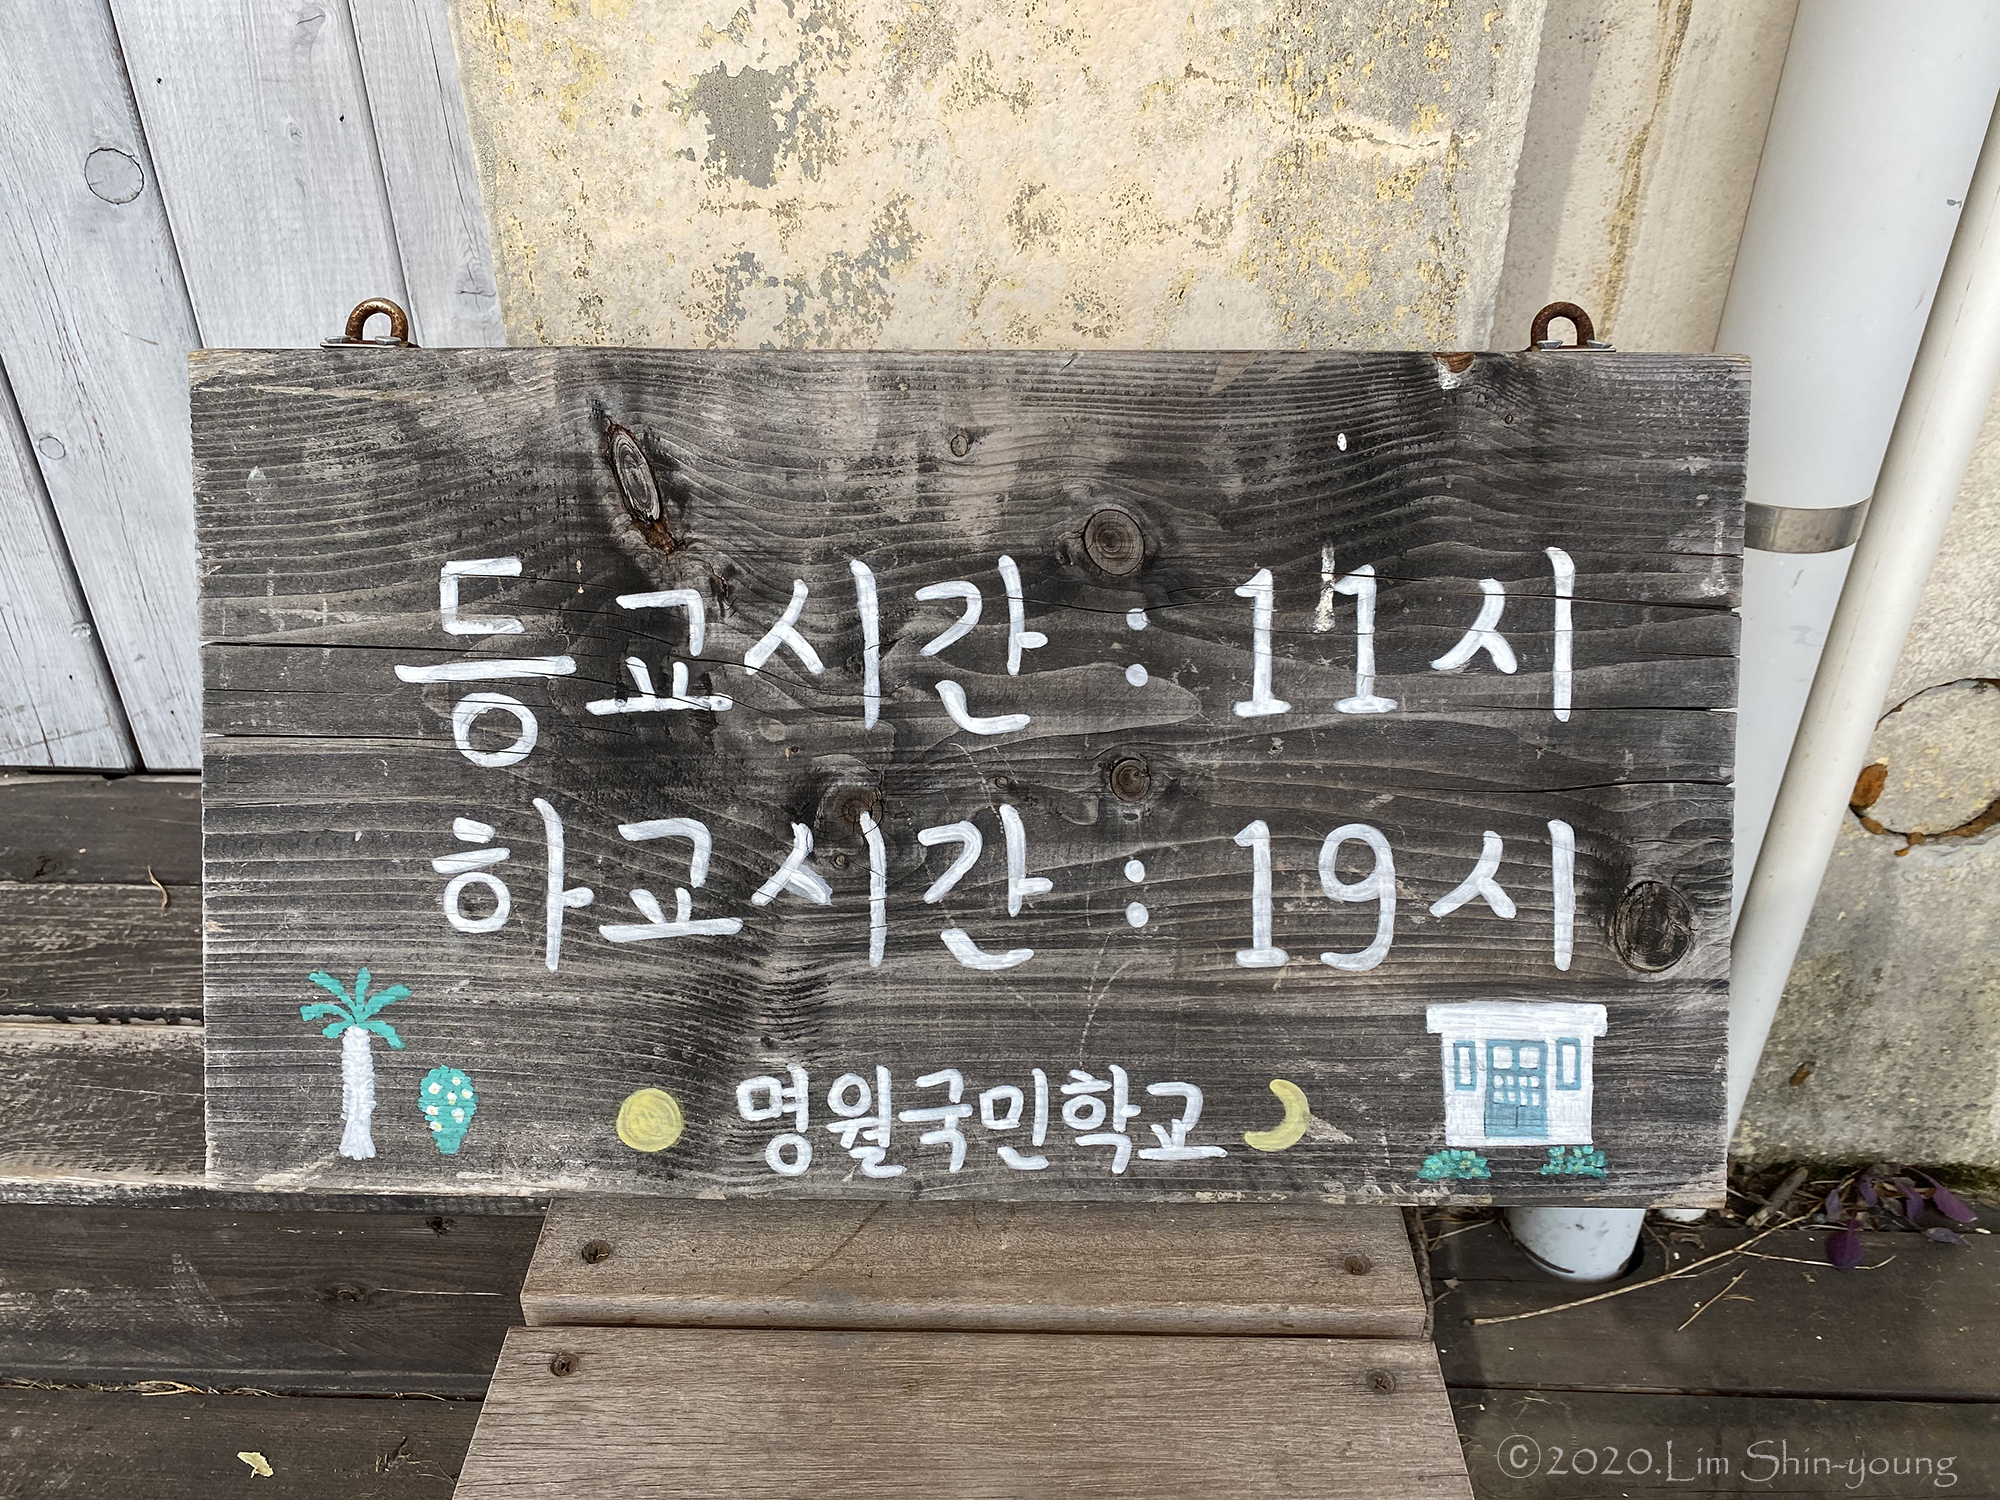 등교시간 : 11시
하교시간 : 19시
명월국민학교
©2020.Lim Shin-young